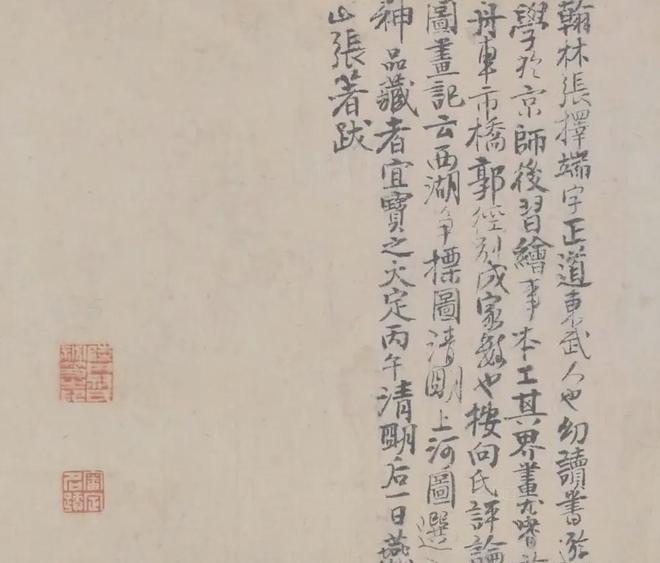 翰林張擇端字正道東武人也幼讀書遊
學於京師後習繪事本工其界畫尤嗜於
舟車市橋郭徑別成家數也按向氏評論
圖畫記云西湖爭標圖清明上河圖選
神品藏者宜寶之大定丙午清明后一日燕
山張著跋